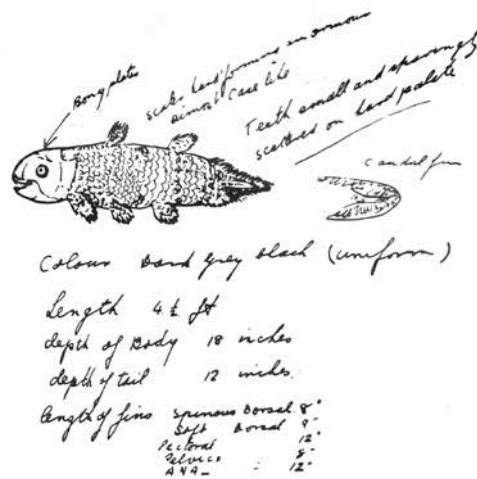 Bony plates
scales hard forming enormous
almost case like
Teeth small and sparingly
scattered on hard palate
Caudal fin
Colour Dark Grey black (uniform)
Length 4½ ft
depth of Body 18 inches
depth of tail 12 inches.
length of fins Spinous Dorsal 8"
Soft Dorsal 9"
Pectoral 12"
Pelvics 8"
ANA- 12"